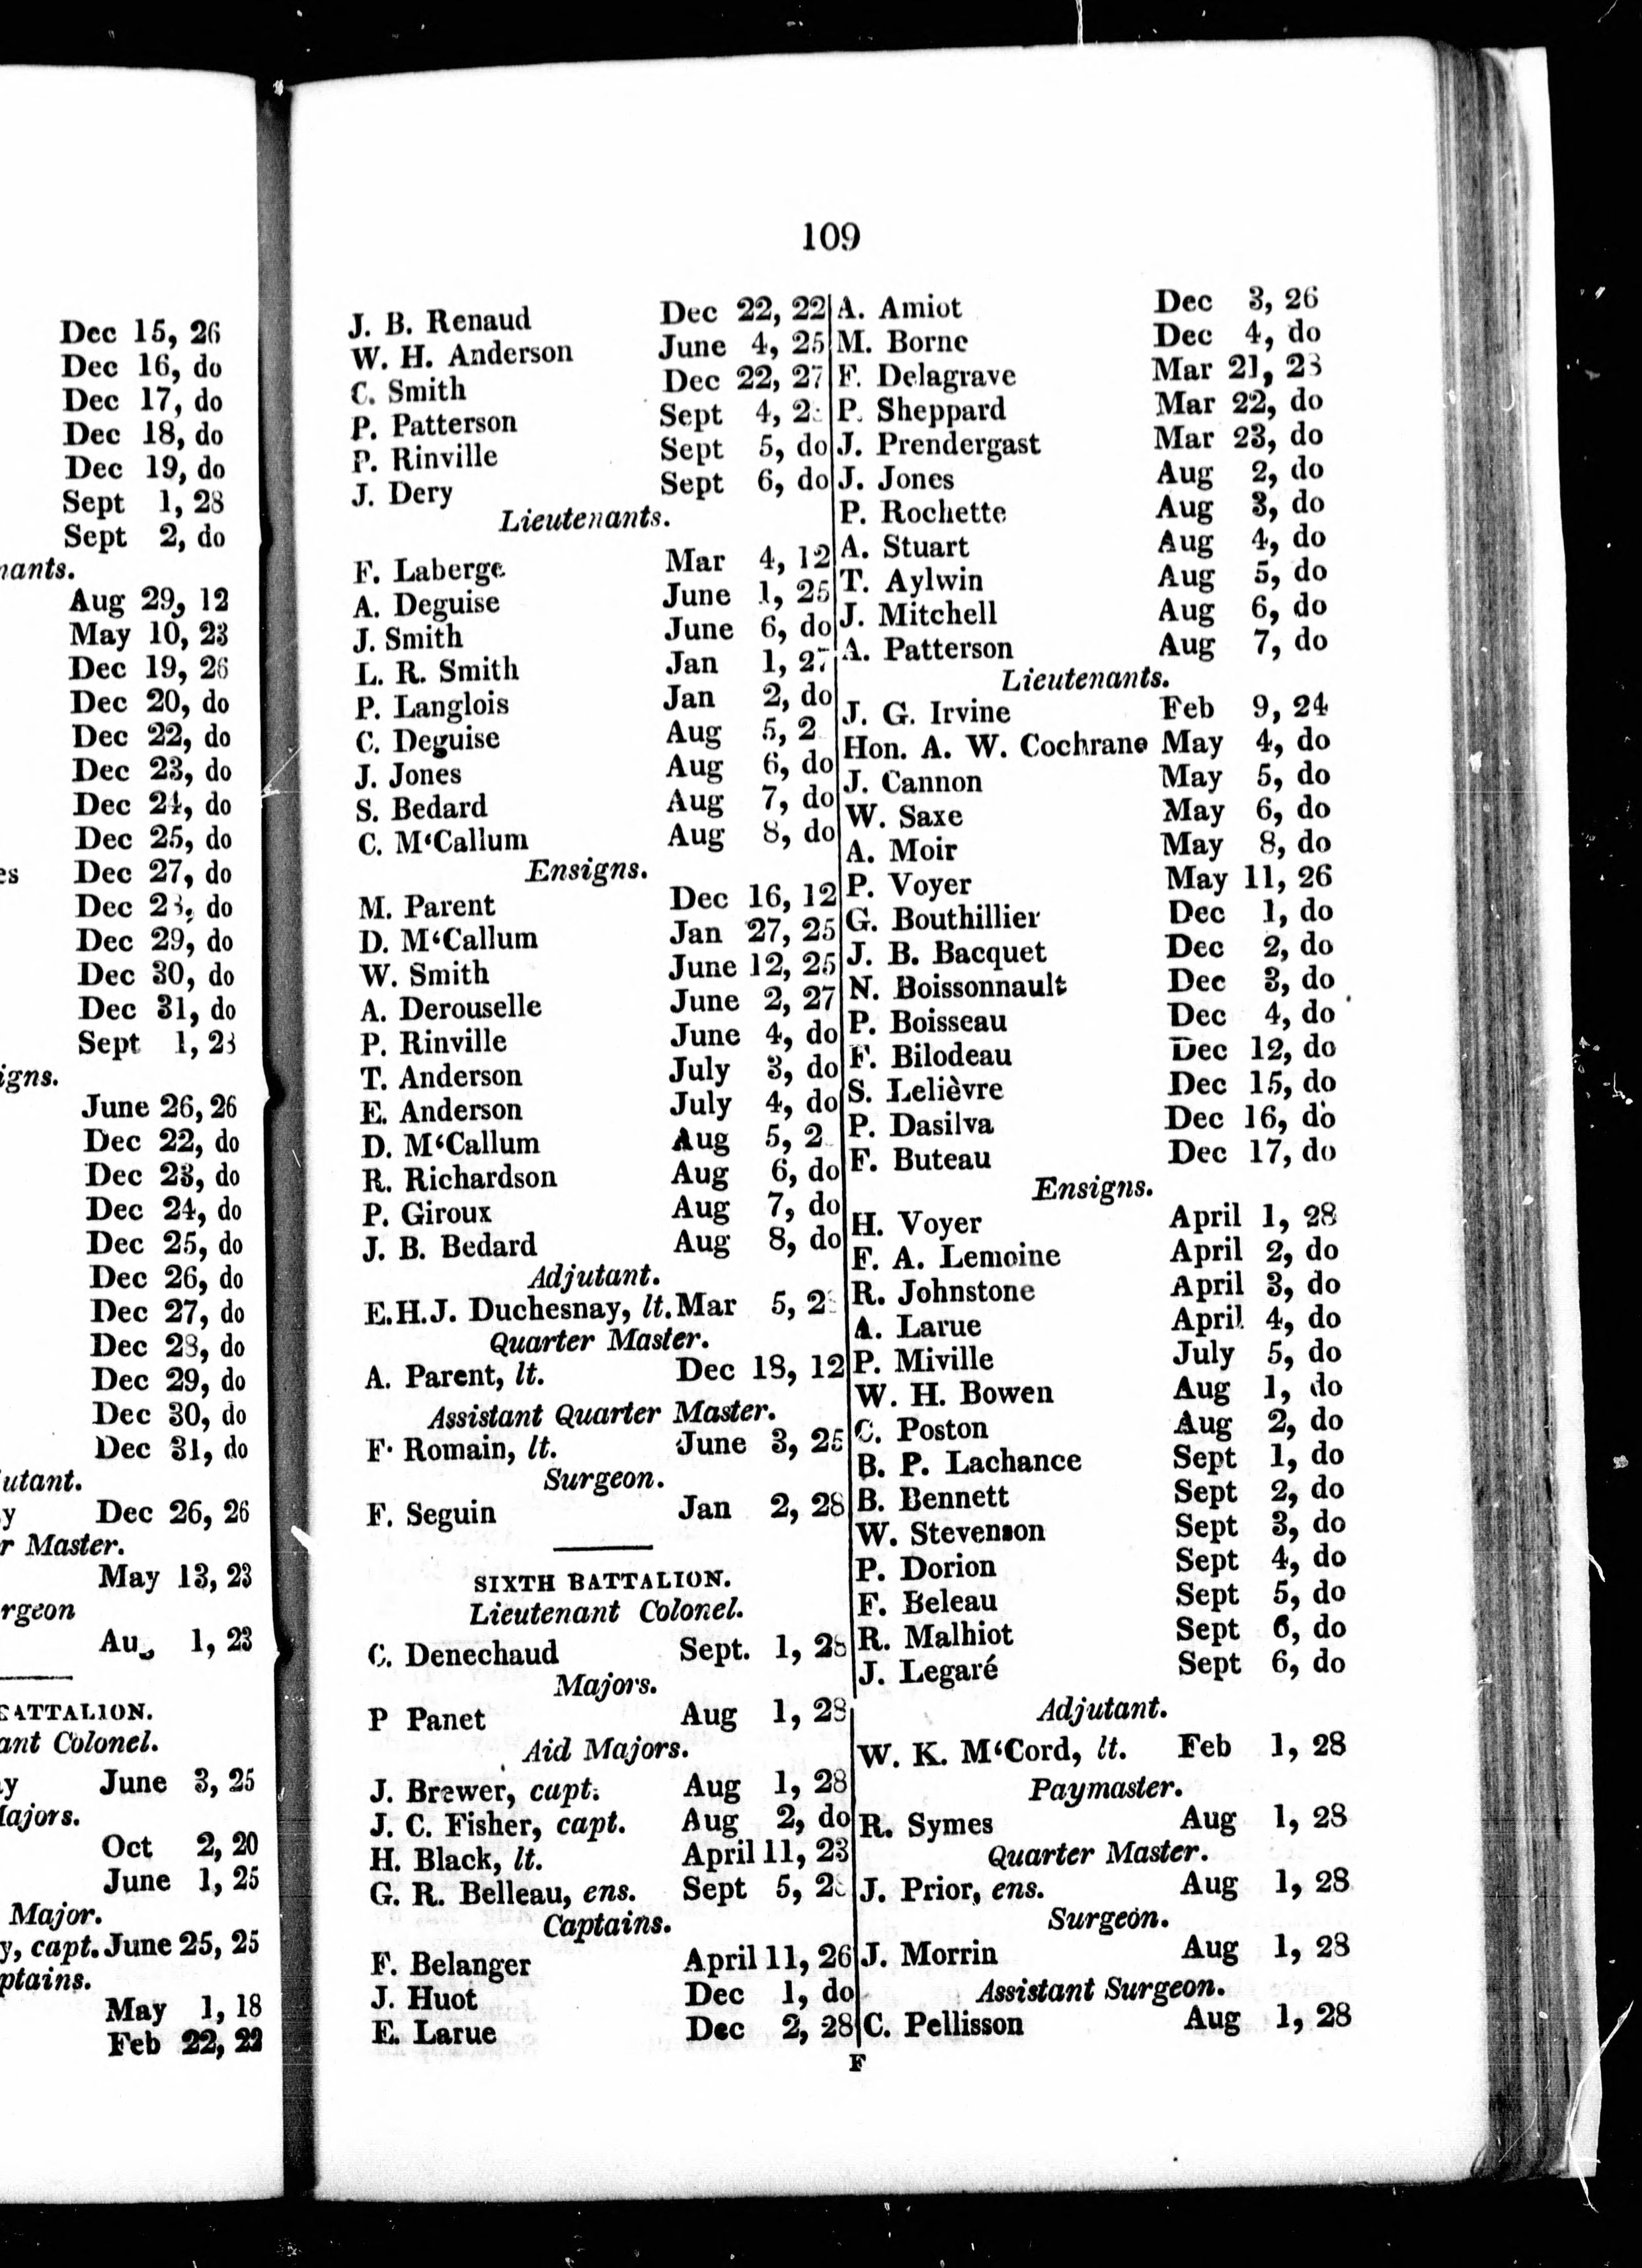 Dec 15, 26
Dec 16, do
Dec 17, do
Dec 18, do
Dec 19, do
Sept 1, 28
Sept 2, do
nants.
Aug 29, 12
May 10, 23
Dec 19, 26
Dec 20, do
Dec 22, do
Dec 23, do
Dec 24, do
Dec 25, do
es Dec 27, do
Dec do
Dec 29, do
Dec 30, do
Dec 31, do
Sept 1,
igns.
June 26, 26
Dec 22, do
Dec 23, do
Dec 24, do
Dec 25, do
Dec 26, do
Dec 27, do
Dec 28, do
Dec 29, do
Dec 30, do
Dec 31, do
utant.
y Dec 26, 26
r Master.
May 13, 23
rgeon
1, 23
BATTALION.
ant Colonel.
y June 3, 25
Majors.
Oct 2, 20
June 1, 25
Major.
y, capt. June 25, 25
ptains.
May 1, 18
Feb 22, 22
109
J. B. Renaud Dec 22, 22
W. H. Anderson June 4, 25
C. Smith Dec 22, 27
P. Patterson Sept 4,
P. Rinville Sept 5, do
J. Dery Sept 6, do
Lieutenants.
F. Laberge Mar 4, 12
A. Deguise June 1, 25
J. Smith June 6, do
L. R. Smith Jan 1, 27
P. Langlois Jan 2, do
C. Deguise Aug 5, 2
J. Jones Aug 6, do
S. Bedard Aug 7, do
C. M‘Callum Aug 8, do
Ensigns.
M. Parent Dec 16, 12
D. M‘Callum Jan 27, 25
W. Smith June 12, 25
A. Derouselle June 2, 27
P. Rinville June 4, do
T. Anderson July 3, do
E. Anderson July 4, do
D. M‘Callum Aug 5, 2
R. Richardson Aug 6, do
P. Giroux Aug 7, do
J. B. Bedard Aug 8, do
Adjutant.
E.H.J. Duchesnay, lt. Mar 5,
Quarter Master.
A. Parent, lt. Dec 18, 12
Assistant Quarter Master.
F. Romain, lt. June 3, 25
Surgeon.
F. Seguin Jan 2, 28
SIXTH BATTALION.
Lieutenant Colonel.
C. Denechaud Sept. 1, 28
Majors.
P Panet Aug 1, 28
Aid Majors.
J. Brewer, capt. Aug 1, 28
J. C. Fisher, capt. Aug 2, do
H. Black, lt. April 11, 23
G. R. Belleau, ens. Sept 5,
Captains.
F. Belanger April 11, 26
J. Huot Dec 1, do
E. Larue Dec 2, 28
A. Amiot Dec 3, 26
M. Borne Dec 4, do
F. Delagrave Mar 21,
P. Sheppard Mar 22, do
J. Prendergast Mar 23, do
J. Jones Aug 2, do
P. Rochette Aug 3, do
A. Stuart Aug 4, do
T. Aylwin Aug 5, do
J. Mitchell Aug 6, do
A. Patterson Aug 7, do
Lieutenants.
J. G. Irvine Feb 9, 24
Hon. A. W. Cochrane May 4, do
J. Cannon May 5, do
W. Saxe May 6, do
A. Moir May 8, do
P. Voyer May 11, 26
G. Bouthillier Dec 1, do
J. B. Bacquet Dec 2, do
N. Boissonnault Dec 3, do
P. Boisseau Dec 4, do
F. Bilodeau Dec 12, do
S. Lelièvre Dec 15, do
P. Dasilva Dec 16, do
F. Buteau Dec 17, do
Ensigns.
H. Voyer April 1, 28
F. A. Lemoine April 2, do
R. Johnstone April 3, do
A. Larue April 4, do
P. Miville July 5, do
W. H. Bowen Aug 1, do
C. Poston Aug 2, do
B. P. Lachance Sept 1, do
B. Bennett Sept 2, do
W. Stevenson Sept 3, do
P. Dorion Sept 4, do
F. Beleau Sept 5, do
R. Malhiot Sept 6, do
J. Legaré Sept 6, do
Adjutant.
W. K. M‘Cord, lt. Feb 1, 28
Paymaster.
R. Symes Aug 1, 28
Quarter Master.
J. Prior, ens. Aug 1, 28
Surgeon.
J. Morrin Aug 1, 28
Assistant Surgeon.
C. Pellisson Aug 1, 28
F